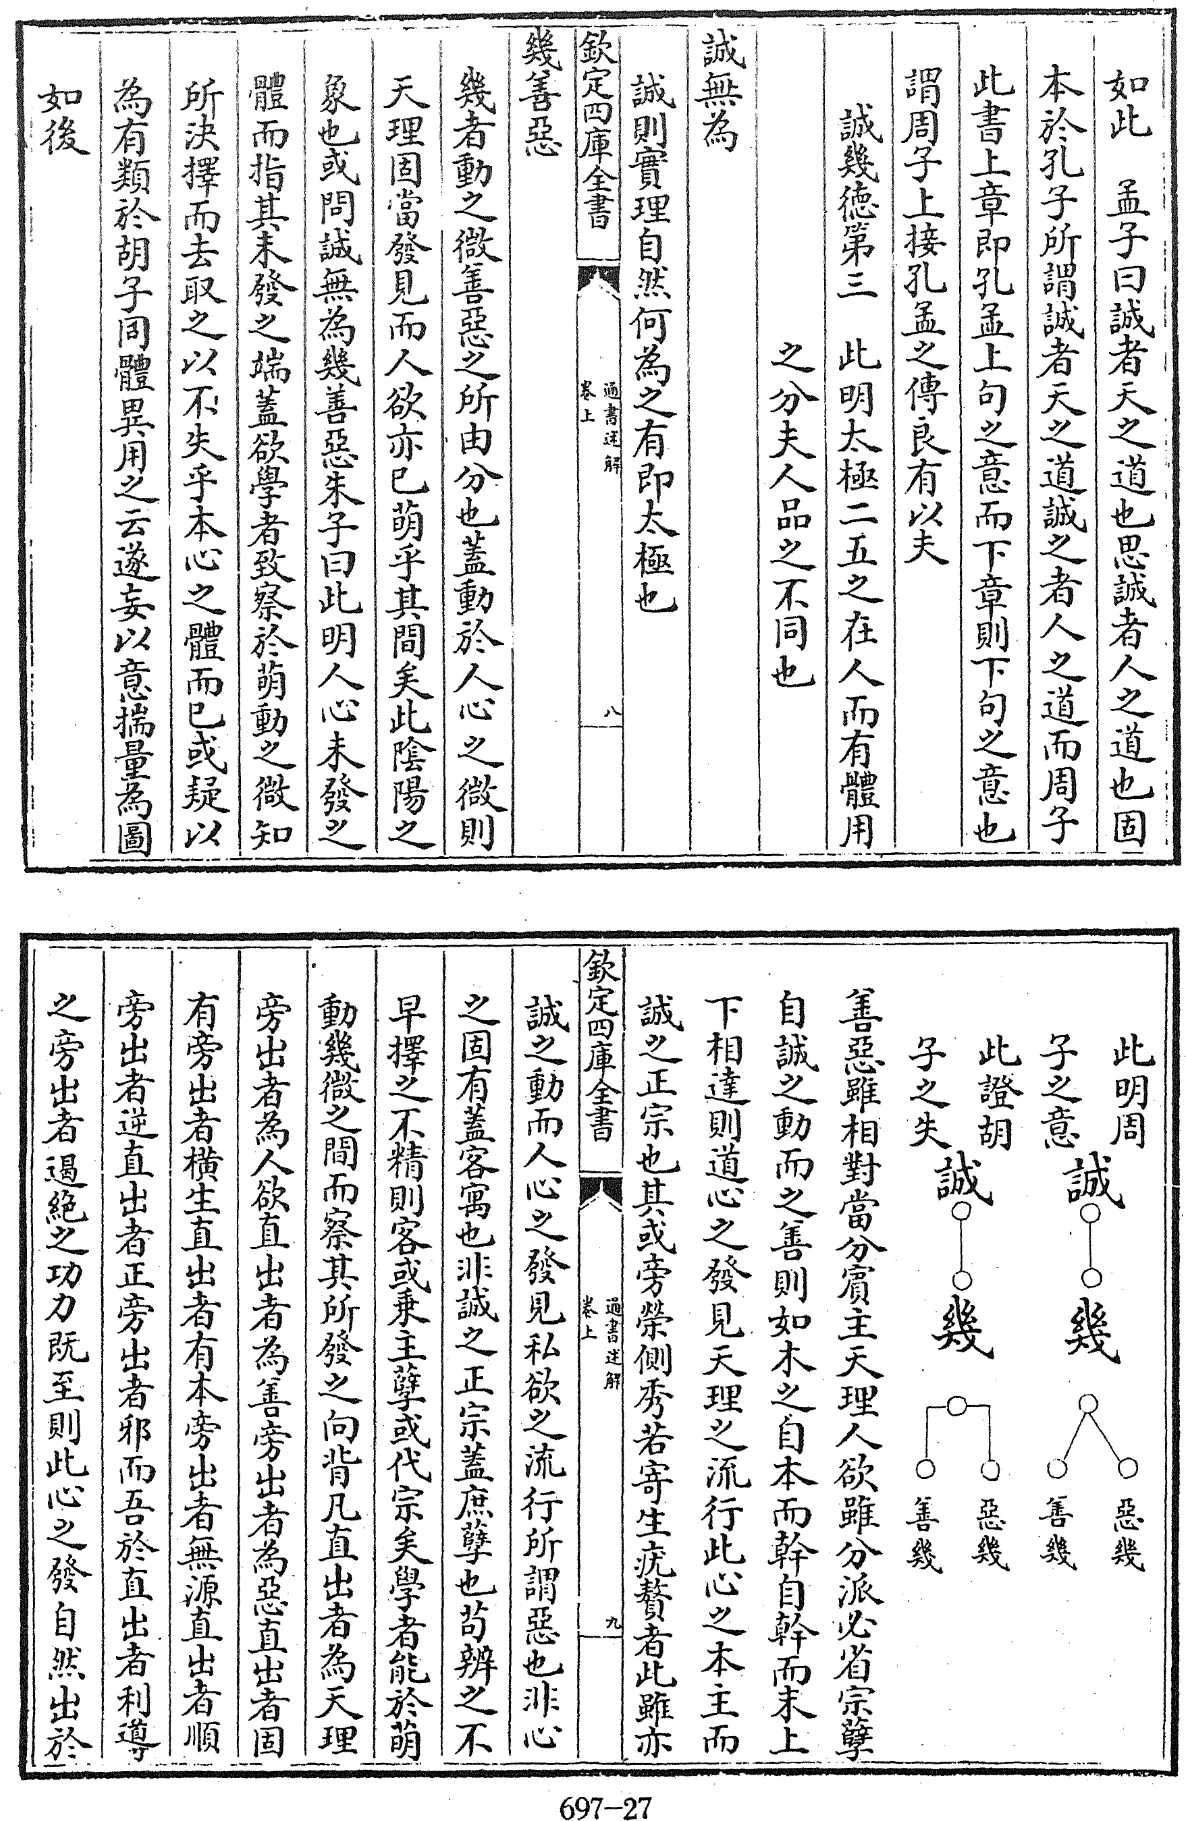 如此　孟子曰誠者天之道也思誠者人之道也固
本於孔子所謂誠者天之道誠之者人之道而周子
此書上章即孔孟上句之意而下章則下句之意也
謂周子上接孔孟之傳良有以夫
誠幾德第三　此明太極二五之在人而有體用
之分夫人品之不同也
誠無為
誠則實理自然何為之有即太極也
欽定四庫全書
通書述解
卷上
八
幾善惡
幾者動之微善惡之所由分也蓋動於人心之微則
天理固當發見而人欲亦已萌乎其間矣此陰陽之
象也或問誠無為幾善惡朱子曰此明人心未發之
體而指其未發之端蓋欲學者致察於萌動之微知
所決擇而去取之以不失乎本心之體而已或疑以
為有類於胡子同體異用之云遂妄以意揣量為圖
如後
此明周
子之意
誠
幾
惡幾
善幾
此證胡
子之失
誠
幾
惡幾
善幾
善惡雖相對當分賓主天理人欲雖分派必省宗孽
自誠之動而之善則如木之自本而幹自幹而末上
下相達則道心之發見天理之流行此心之本主而
誠之正宗也其或旁榮側秀若寄生疣贅者此雖亦
欽定四庫全書
通書述解
卷上
九
誠之動而人心之發見私欲之流行所謂惡也非心
之固有蓋客寓也非誠之正宗蓋庶孽也苟辨之不
早擇之不精則客或乗主孽或代宗矣學者能於萌
動幾微之間而察其所發之向背凡直出者為天理
旁出者為人欲直出者為善旁出者為惡直出者固
有旁出者橫生直出者有本旁出者無源直出者順
旁出者逆直出者正旁出者邪而吾於直出者利導
之旁出者遏絕之功力既至則此心之發自然出於
697-27